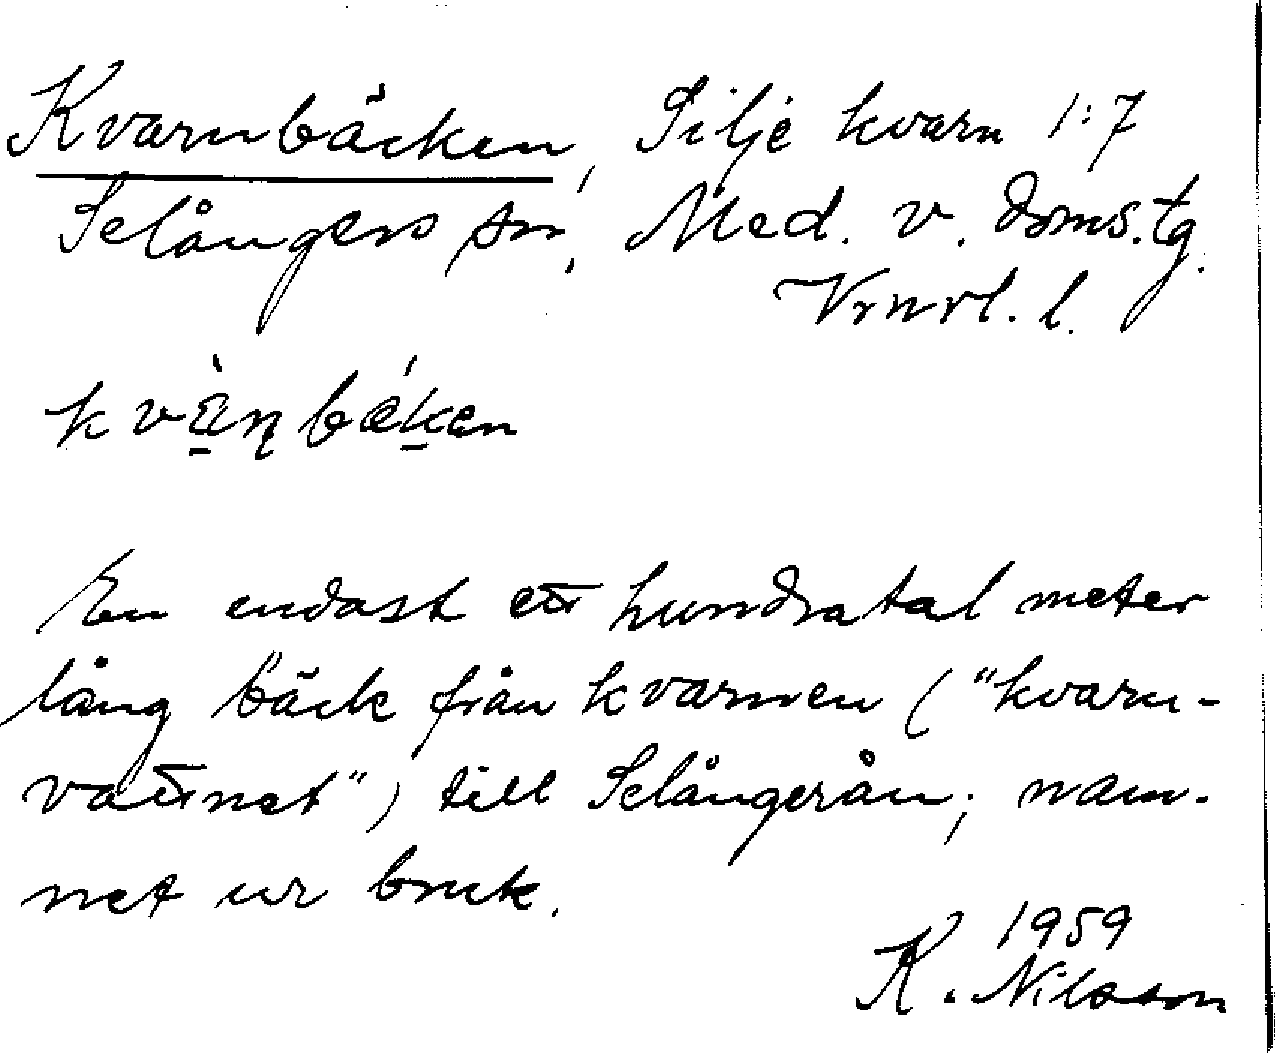 Kvarnbäcken, Silje kvarn 1:7
Selångers sn, Med. v. doms.tg.
Vrnrl. l.
En endast ett hundratal meter
lång bäck från kvarnen ("kvarn-
vattnet") till Selångerån; nam-
net ur bruk.
1959
K. Nilsson